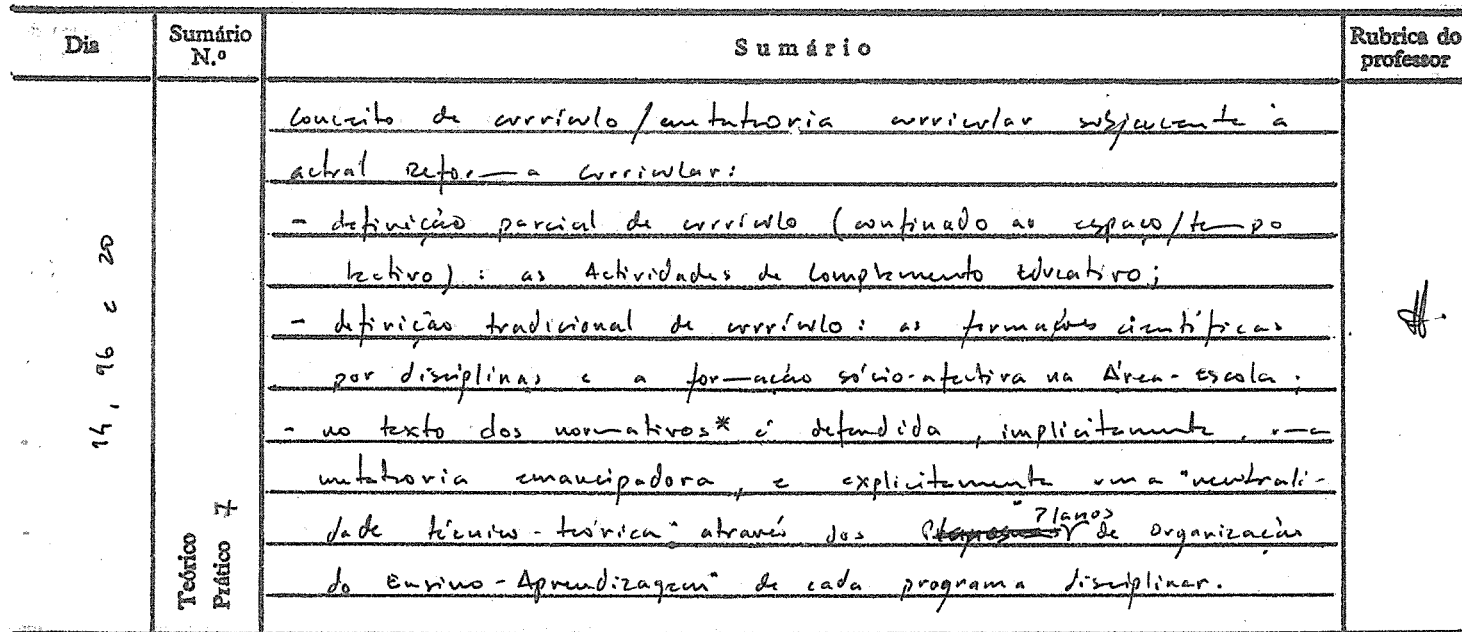 Dia
Sumário N.º
Sumário
Rubrica do professor
14, 16 e 20
Teórico
Prático 7
Conceito de currículo / metateoria curricular subjacente à
actual Reforma Curricular:
- definição parcial de currículo (confinado ao espaço/tempo
lectivo): as Actividades de Complemento Educativo;
- definição tradicional de currículo: as formações científicas
por disciplinas e a formação sócio-afectiva na Área-Escola.
- no texto dos normativos* é defendida, implicitamente, uma
metateoria emancipadora, e explicitamente uma "neutrali-
dade técnico-teórica" através dos "Planos de Organização
do Ensino-Aprendizagem" de cada programa disciplinar.